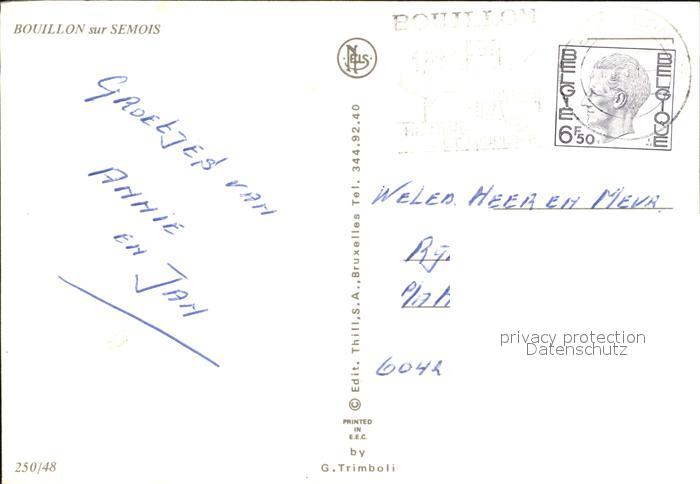 BOUILLON sur SEMOIS
GROETJES VAN
ANNIE
EN JAN
250/48
NELS
© Edit. Thill, S.A., Bruxelles Tel. 344.92.40
PRINTED
IN
E.E.C.
by
G. Trimboli
BOUILLON
BELGIE
BELGIQUE
6F50
WELED. HEER EN MEVR.
6042
privacy protection
Datenschutz